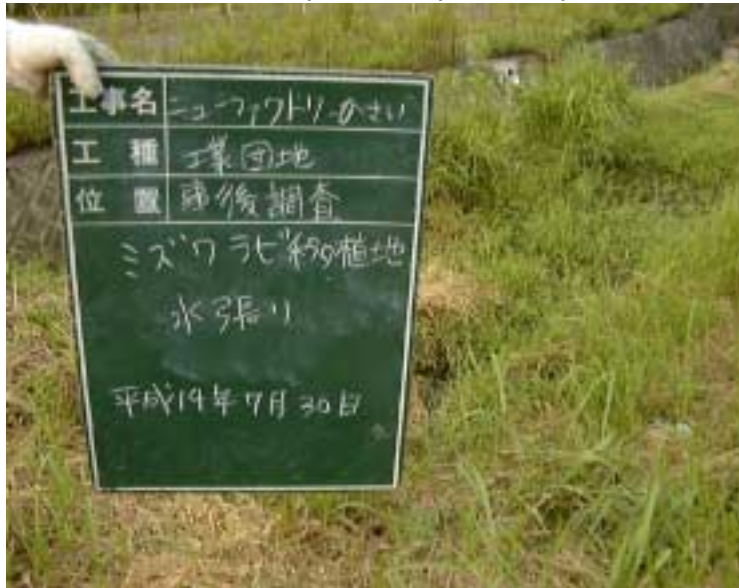 工事名 ニューファクトリーのさい
工種 工業団地
位置 事後調査
ミズワラビ移植地
水張り
平成19年7月30日